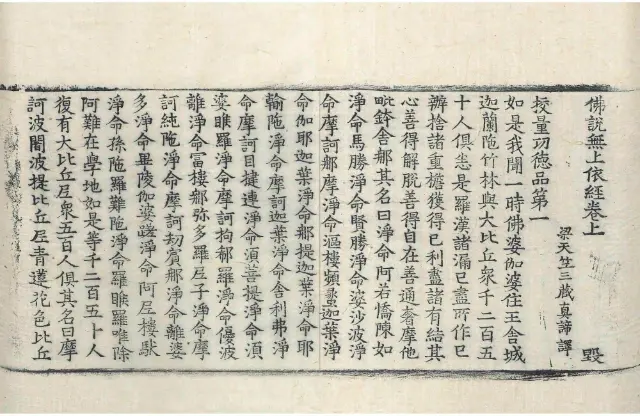 佛說無上依經卷上 毀
梁天竺三藏真諦譯
挍量功德品第一
如是我聞一時佛婆伽婆住王舍城
迦蘭陁竹林與大比丘衆千二百五
十人俱悉是羅漢諸漏已盡所作已
辦捨諸重擔獲得已利盡諸有結其
心善得解脫善得自在善通奢摩他
毗鉢舍那其名曰淨命阿若憍陳如
淨命馬勝淨命賢勝淨命娑沙波淨
命摩訶那摩淨命漚樓頻蠡迦葉淨
命伽耶迦葉淨命那提迦葉淨命耶
輸陁淨命摩訶迦葉淨命舍利弗淨
命摩訶目揵連淨命須菩提淨命須
婆睺羅淨命摩訶拘郗羅淨命優波
離淨命富樓那弥多羅尼子淨命摩
訶純陁淨命摩訶劫賓那淨命離婆
多淨命畢陵伽婆蹉淨命阿尼樓馱
淨命孫陁羅難陁淨命羅睺羅唯除
阿難在學地如是等千二百五十人
復有大比丘尼衆五百人俱其名曰摩
訶波闍波提比丘尼青蓮花色比丘